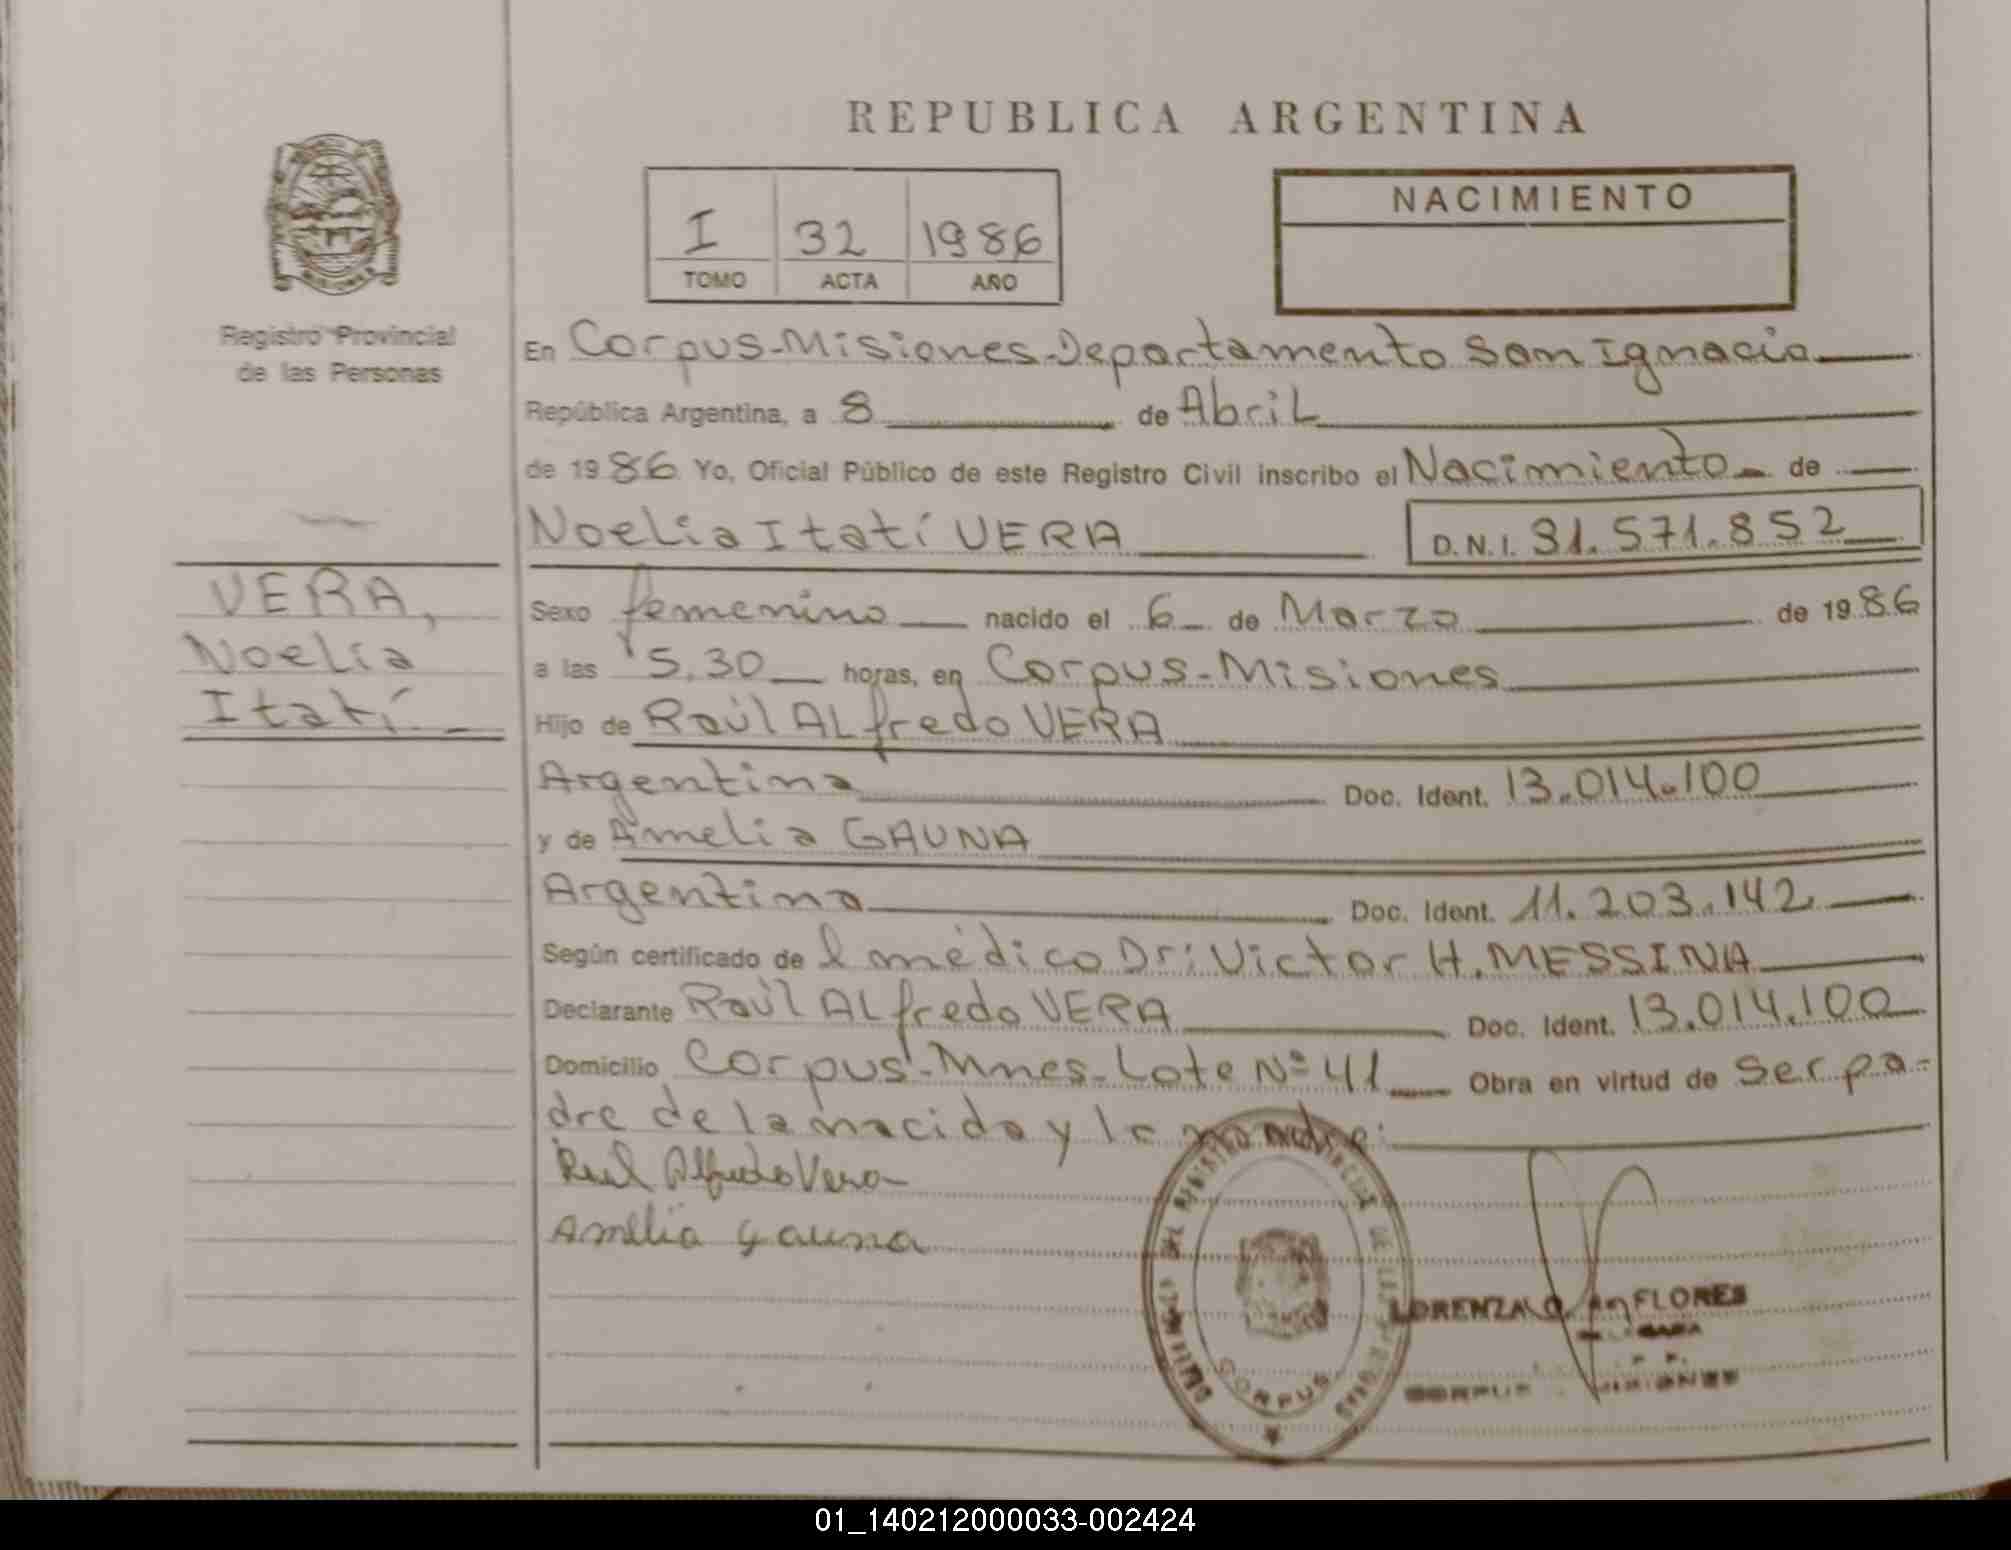 REPUBLICA ARGENTINA
I 32 1986
TOMO ACTA AÑO
NACIMIENTO
Registro Provincial
de las Personas
En Corpus-Misiones-Departamento San Ignacio
República Argentina, a 8 de Abril
de 1986 Yo, Oficial Público de este Registro Civil inscribo el Nacimiento de
Noelia Itatí VERA D.N.I. 31.571.852
VERA,
Noelia
Itatí
Sexo femenino nacido el 6 de Marzo de 1986
a las 5,30 horas, en Corpus-Misiones
Hijo de Raúl ALfredo VERA
Argentina Doc. Ident. 13.014.100
y de Amelia GAUNA
Argentina Doc. Ident. 11.203.142
Según certificado de l médico Dr: Victor H. MESSINA
Declarante Raúl ALfredo VERA Doc. Ident. 13.014.100
Domicilio Corpus-Mnes-Lote Nº 41 Obra en virtud de ser pa-
dre de la nacida y la madre.
Raul Alfredo Vera
Amelia Gauna
DEL REGISTRO PROVINCIAL DE LAS PERSONAS
CORPUS
LORENZA FLORES
CORPUS MISIONES
01_140212000033-002424